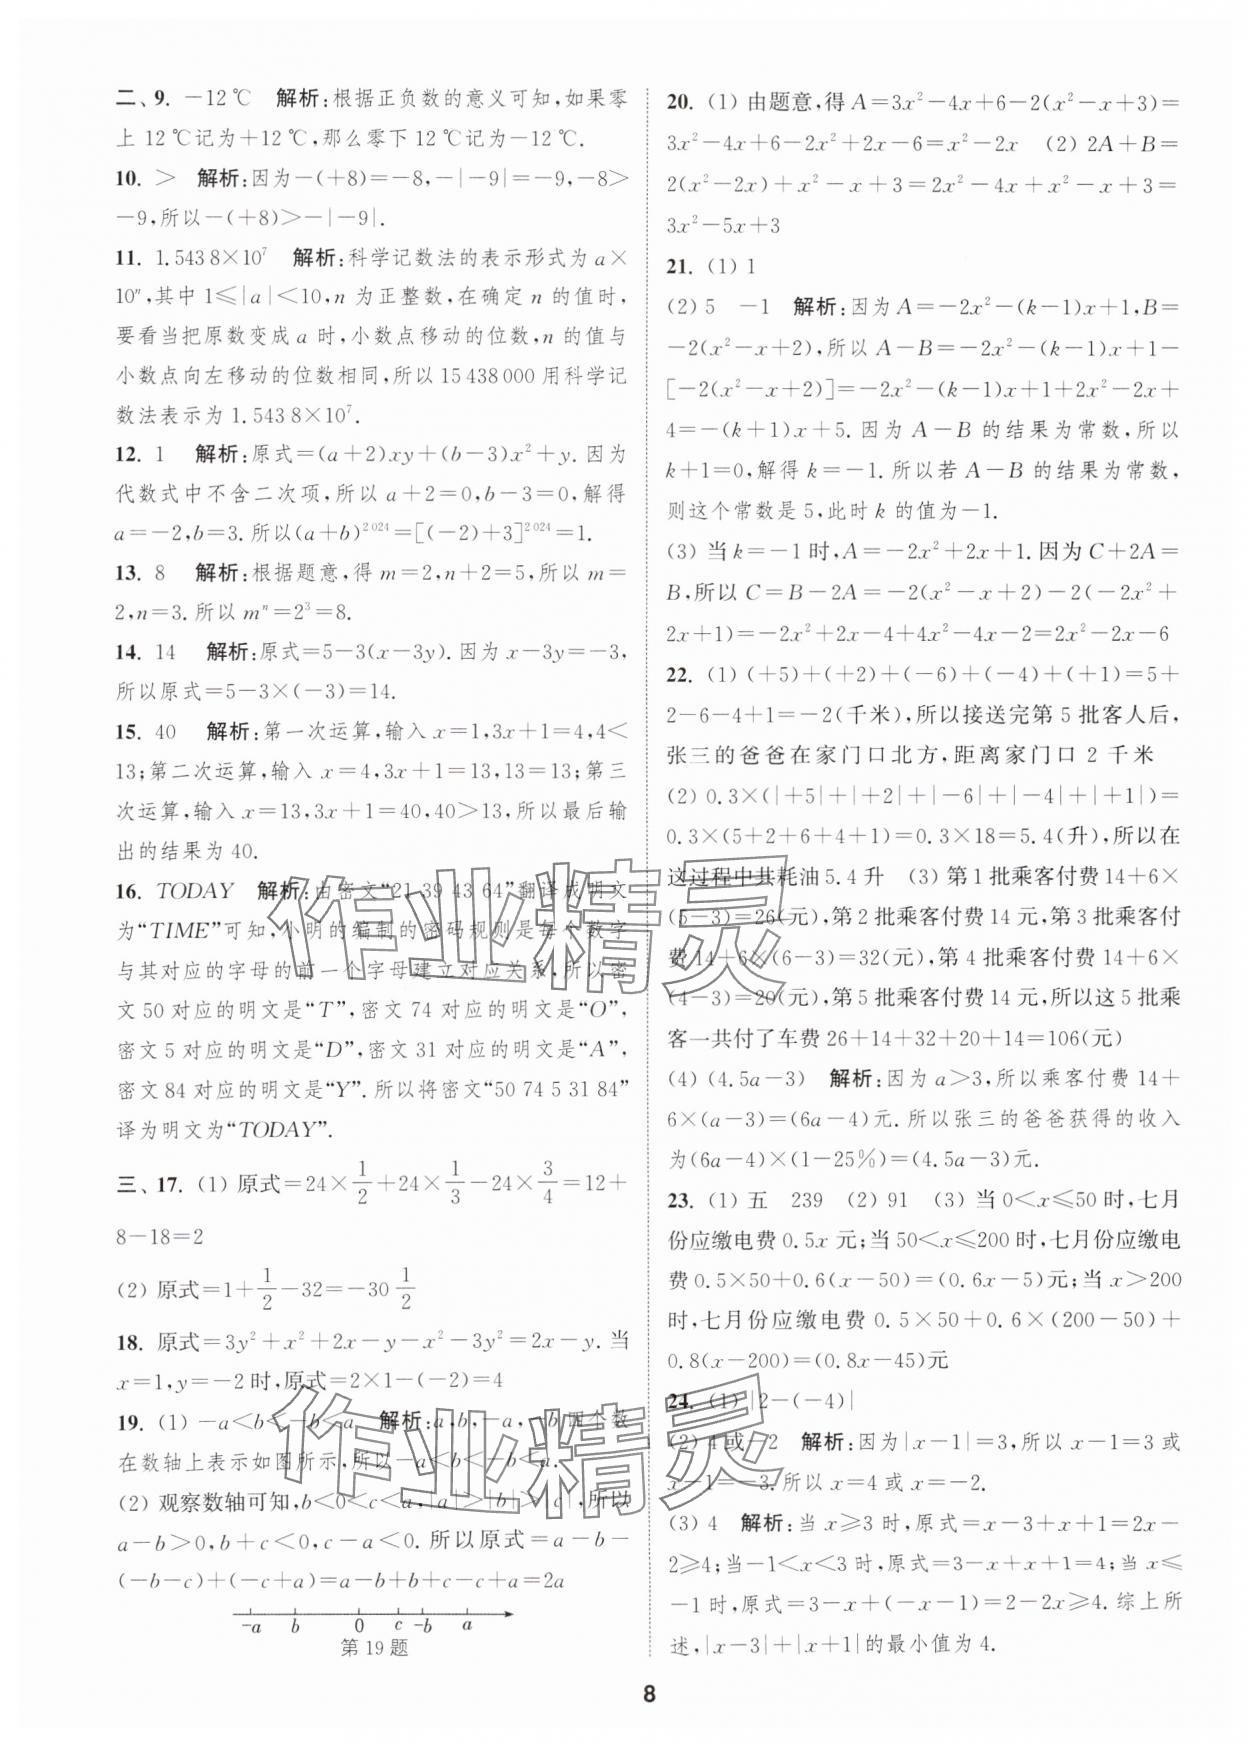 二、9. －12℃　解析:根据正负数的意义可知,如果零
上 12℃记为＋12℃,那么零下 12℃记为－12℃.
10. ＞　解析:因为－(＋8)＝－8,－|－9|＝－9,－8＞
－9,所以－(＋8)＞－|－9|.
11. 1.543 8×10⁷　解析:科学记数法的表示形式为 a×
10ⁿ,其中 1≤|a|＜10,n 为正整数,在确定 n 的值时,
要看当把原数变成 a 时,小数点移动的位数,n 的值与
小数点向左移动的位数相同,所以 15 438 000 用科学记
数法表示为 1.543 8×10⁷.
12. 1　解析:原式＝(a＋2)xy＋(b－3)x²＋y. 因为
代数式中不含二次项,所以 a＋2＝0,b－3＝0,解得
a＝－2,b＝3. 所以(a＋b)²⁰²⁴＝[(－2)＋3]²⁰²⁴＝1.
13. 8　解析:根据题意,得 m＝2,n＋2＝5,所以 m＝
2,n＝3. 所以 mⁿ＝2³＝8.
14. 14　解析:原式＝5－3(x－3y). 因为 x－3y＝－3,
所以原式＝5－3×(－3)＝14.
15. 40　解析:第一次运算,输入 x＝1,3x＋1＝4,4＜
13;第二次运算,输入 x＝4,3x＋1＝13,13＝13;第三
次运算,输入 x＝13,3x＋1＝40,40＞13,所以最后输
出的结果为 40.
16. TODAY　解析:由密文“21 39 43 64”翻译成明文
为“TIME”可知,小明的编制的密码规则是每个数字
与其对应的字母的前一个字母建立对应关系,所以密
文 50 对应的明文是“T”,密文 74 对应的明文是“O”,
密文 5 对应的明文是“D”,密文 31 对应的明文是“A”,
密文 84 对应的明文是“Y”. 所以将密文“50 74 5 31 84”
译为明文为“TODAY”.
三、17. (1) 原式＝24×1/2＋24×1/3－24×3/4＝12＋
8－18＝2
(2) 原式＝1＋1/2－32＝－30 1/2
18. 原式＝3y²＋x²＋2x－y－x²－3y²＝2x－y. 当
x＝1,y＝－2 时,原式＝2×1－(－2)＝4
19. (1) －a＜b＜－b＜a　解析:a,b,－a,－b 四个数
在数轴上表示如图所示,所以－a＜b＜－b＜a.
(2) 观察数轴可知,b＜0＜c＜a,|a|＞|b|＞|c|,所以
a－b＞0,b＋c＜0,c－a＜0. 所以原式＝a－b－
(－b－c)＋(－c＋a)＝a－b＋b＋c－c＋a＝2a
－a b 0 c －b a
第 19 题
20. (1) 由题意,得 A＝3x²－4x＋6－2(x²－x＋3)＝
3x²－4x＋6－2x²＋2x－6＝x²－2x　(2) 2A＋B＝
2(x²－2x)＋x²－x＋3＝2x²－4x＋x²－x＋3＝
3x²－5x＋3
21. (1) 1
(2) 5　－1　解析:因为 A＝－2x²－(k－1)x＋1,B＝
－2(x²－x＋2),所以 A－B＝－2x²－(k－1)x＋1－
[－2(x²－x＋2)]＝－2x²－(k－1)x＋1＋2x²－2x＋
4＝－(k＋1)x＋5. 因为 A－B 的结果为常数,所以
k＋1＝0,解得 k＝－1. 所以若 A－B 的结果为常数,
则这个常数是 5,此时 k 的值为－1.
(3) 当 k＝－1 时,A＝－2x²＋2x＋1. 因为 C＋2A＝
B,所以 C＝B－2A＝－2(x²－x＋2)－2(－2x²＋
2x＋1)＝－2x²＋2x－4＋4x²－4x－2＝2x²－2x－6
22. (1) (＋5)＋(＋2)＋(－6)＋(－4)＋(＋1)＝5＋
2－6－4＋1＝－2(千米),所以接送完第 5 批客人后,
张三的爸爸在家门口北方,距离家门口 2 千米
(2) 0.3×(|＋5|＋|＋2|＋|－6|＋|－4|＋|＋1|)＝
0.3×(5＋2＋6＋4＋1)＝0.3×18＝5.4(升),所以在
这过程中共耗油 5.4 升　(3) 第 1 批乘客付费 14＋6×
(5－3)＝26(元),第 2 批乘客付费 14 元,第 3 批乘客付
费 14＋6×(6－3)＝32(元),第 4 批乘客付费 14＋6×
(4－3)＝20(元),第 5 批乘客付费 14 元,所以这 5 批乘
客一共付了车费 26＋14＋32＋20＋14＝106(元)
(4) (4.5a－3)　解析:因为 a＞3,所以乘客付费 14＋
6×(a－3)＝(6a－4)元. 所以张三的爸爸获得的收入
为(6a－4)×(1－25%)＝(4.5a－3)元.
23. (1) 五　239　(2) 91　(3) 当 0＜x≤50 时,七月
份应缴电费 0.5x 元;当 50＜x≤200 时,七月份应缴电
费 0.5×50＋0.6(x－50)＝(0.6x－5)元;当 x＞200
时,七月份应缴电费 0.5×50＋0.6×(200－50)＋
0.8(x－200)＝(0.8x－45)元
24. (1) |2－(－4)|
(2) 4 或－2　解析:因为|x－1|＝3,所以 x－1＝3 或
x－1＝－3. 所以 x＝4 或 x＝－2.
(3) 4　解析:当 x≥3 时,原式＝x－3＋x＋1＝2x－
2≥4;当－1＜x＜3 时,原式＝3－x＋x＋1＝4;当 x≤
－1 时,原式＝3－x＋(－x－1)＝2－2x≥4. 综上所
述,|x－3|＋|x＋1|的最小值为 4.
8
作业精灵
作业精灵